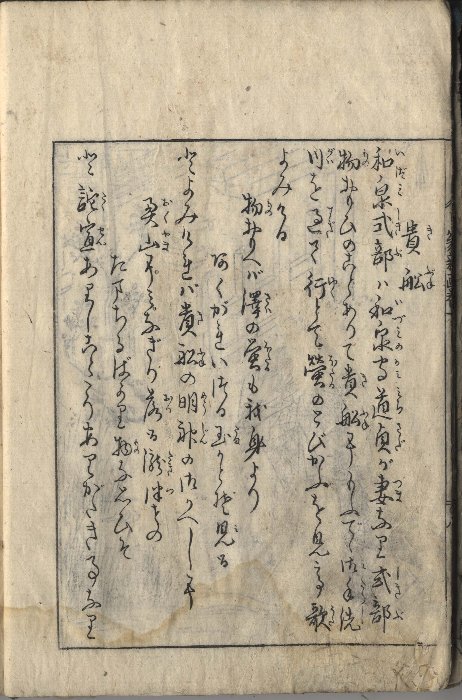 貴船
和泉式部ハ和泉守道貞が妻なり式部
物おもひのことありて貴船にもふで御手洗
川を過て行とて蛍のとびかふを見て歌
よみける
物おもへバ澤の蛍も我身より
あくがれいづる玉かとぞ見る
とよみけれバ貴船の明神の御かへし
奥山にたぎりて落る瀧津せの
たまちるばかり物な思ひそ
と託宣ありしことありがたき事なり